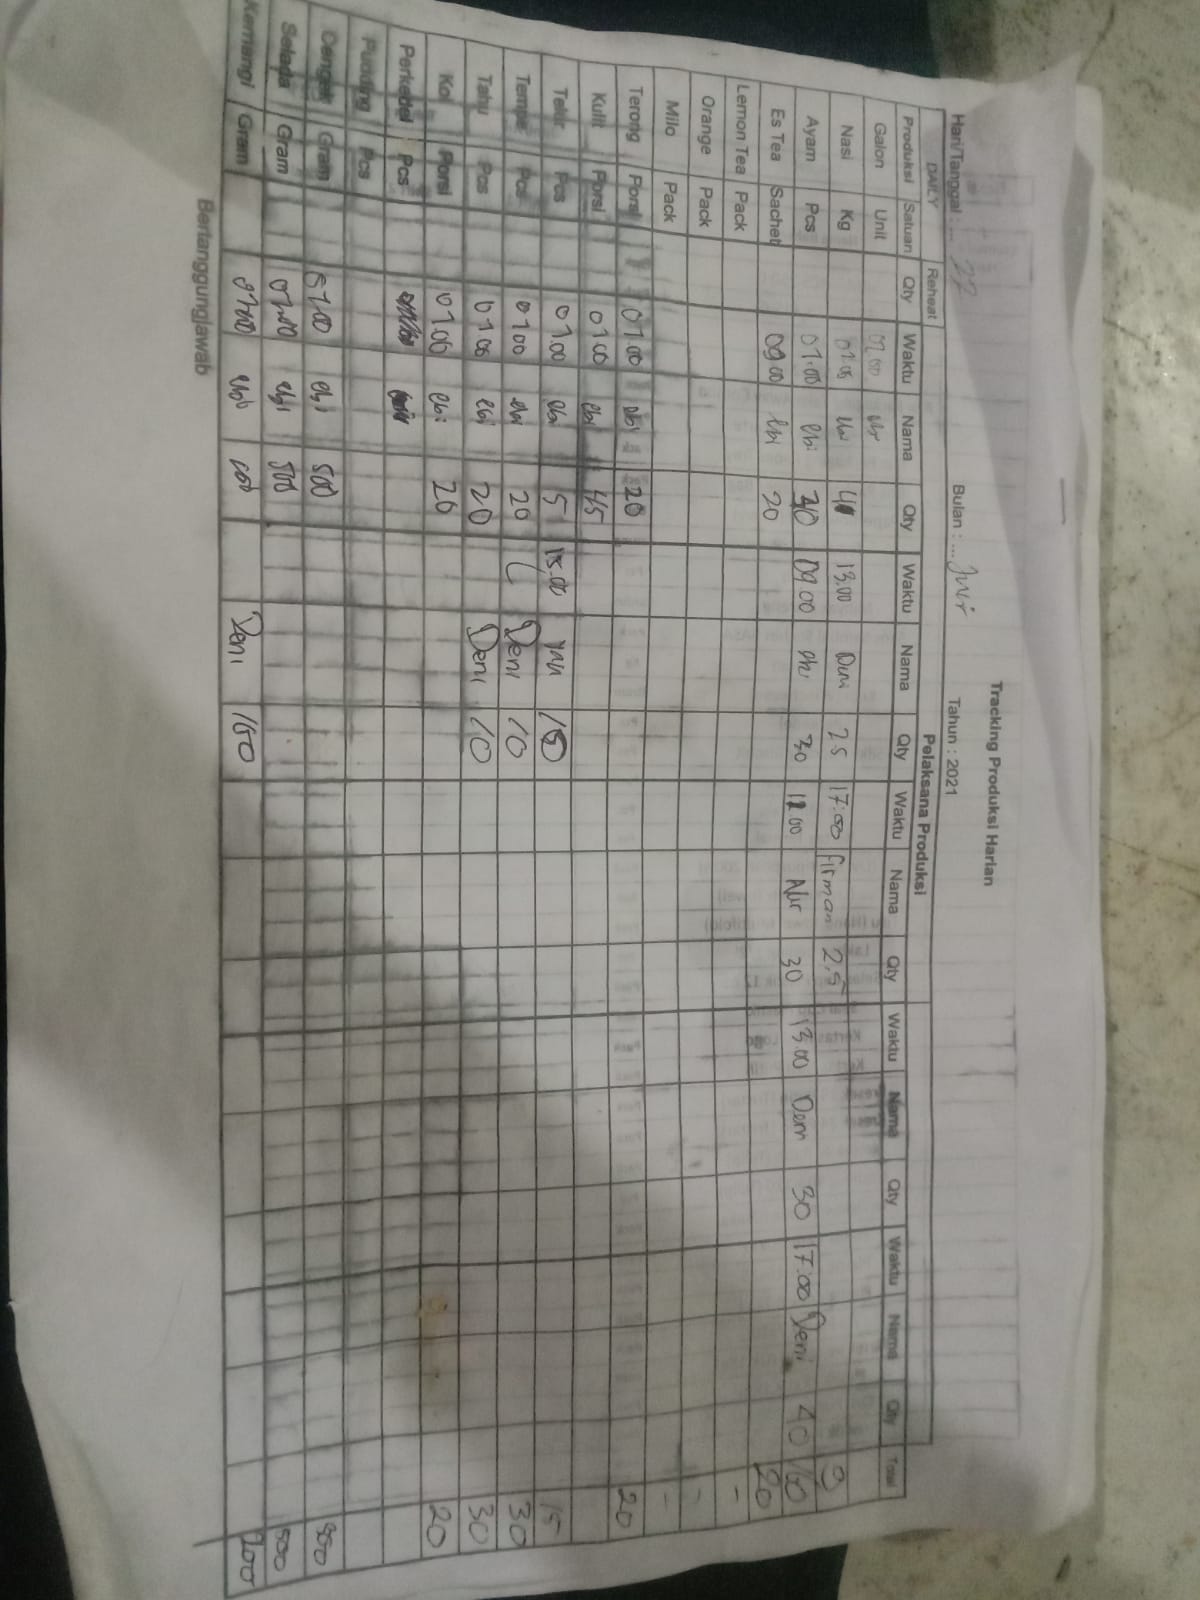 Tracking Produksi Harian
Hari/Tanggal : ... 22 Bulan : ... Juni Tahun : 2021
DAILY Reheat Pelaksana Produksi
Produksi Satuan Qty Waktu Nama Qty Waktu Nama Qty Waktu Nama Qty Waktu Nama Qty Waktu Nama Qty Total
Galon Unit 07.00
Nasi Kg 07.00 13.00 Deni 2.5 17:00 firman 2.5 9
Ayam Pcs 07.00 ebi 30 09.00 30 11.00 Nur 30 13.00 Deni 30 17:00 Deni 40 160
Es Tea Sachet 09.00 ebi 20 20
Lemon Tea Pack -
Orange Pack -
Milo Pack -
Terong Porsi 07.00 ebi 20 20
Kulit Porsi 07.00 ebi 45
Telur Pcs 07.00 ebi 5 15.00 10 15
Tempe Pcs 07.00 ebi 20 Deni 10 30
Tahu Pcs 07.00 ebi 20 Deni 10 30
Kol Porsi 07.00 ebi 20 20
Perkedel Pcs
Pudding Pcs
Cengek Gram 07.00 ebi 500 500
Selada Gram 07.00 ebi 500 500
Kemangi Gram 07.00 Deni 100 200
Bertanggungjawab